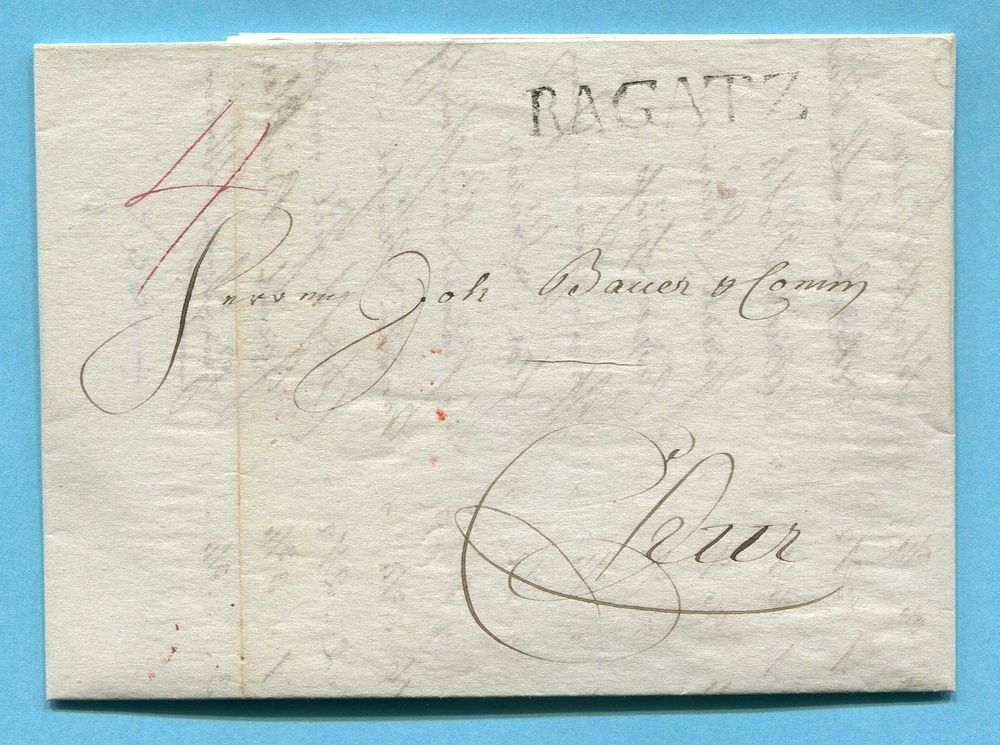 RAGATZ
4
Herren Joh Bauer & Comm
Chur